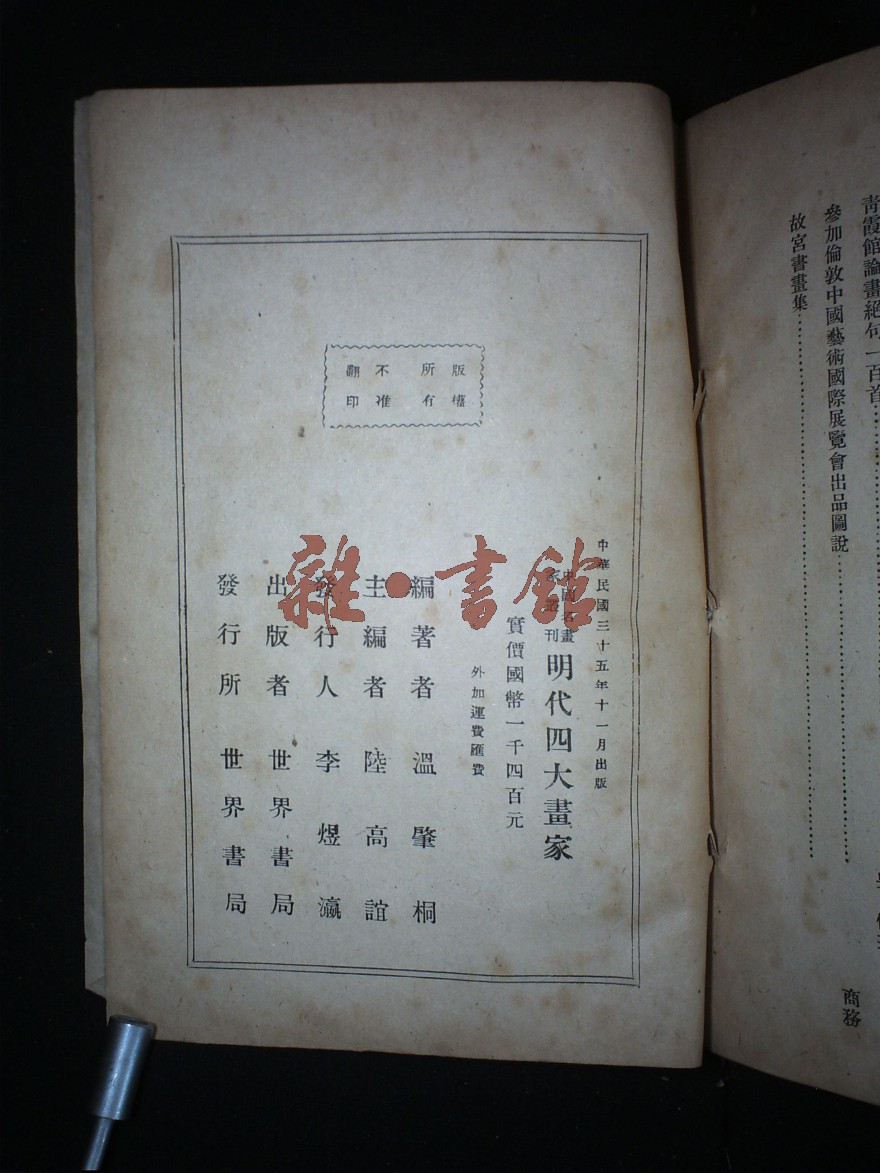 青霞館論畫絕句一百首
參加倫敦中國藝術國際展覽會出品圖說
商務
故宮書畫集
版權所有
不准翻印
中華民國三十五年十一月出版
中國名畫家叢刊
明代四大畫家
實價國幣一千四百元
外加運費匯費
編著者 溫肇桐
主編者 陸高誼
發行人 李煜瀛
出版者 世界書局
發行所 世界書局
雜·書館